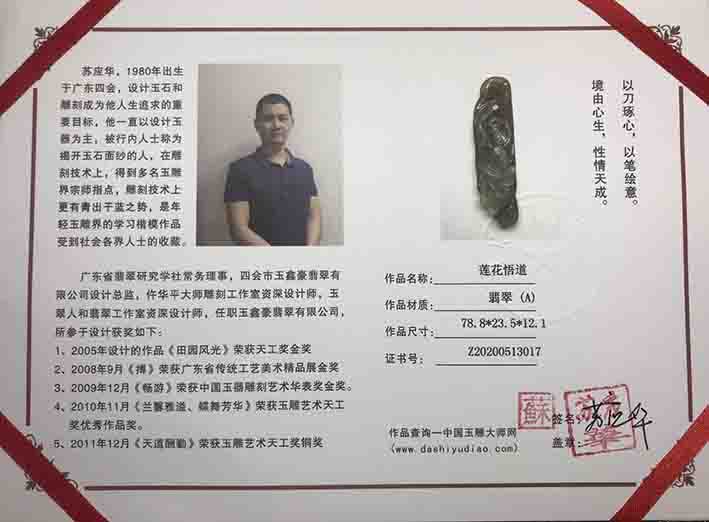 苏应华，1980年出生
于广东四会，设计玉石和
雕刻成为他人生追求的重
要目标，他一直以设计玉
器为主，被行内人士称为
揭开玉石面纱的人，在雕
刻技术上，得到多名玉雕
界宗师指点，雕刻技术上
更有青出于蓝之势，是年
轻玉雕界的学习楷模作品
受到社会各界人士的收藏。
以刀琢心，以笔绘意。
境由心生，性情天成。
广东省翡翠研究学社常务理事，四会市玉鑫豪翡翠有
限公司设计总监，仵华平大师雕刻工作室资深设计师，玉
翠人和翡翠工作室资深设计师，任职玉鑫豪翡翠有限公司，
所参于设计获奖如下：
1、2005年设计的作品《田园风光》荣获天工奖金奖
2、2008年9月《搏》荣获广东省传统工艺美术精品展金奖
3、2009年12月《畅游》荣获中国玉器雕刻艺术华表奖金奖。
4、2010年11月《兰馨雅溢、蝶舞芳华》荣获玉雕艺术天工
奖优秀作品奖。
5、2011年12月《天道酬勤》荣获玉雕艺术天工奖铜奖
作品名称：莲花悟道
作品材质：翡翠（A）
作品尺寸：78.8*23.5*12.1
证书号：Z20200513017
作品查询—中国玉雕大师网
(www.dashiyudiao.com)
蘇
签名：苏应华
盖章：